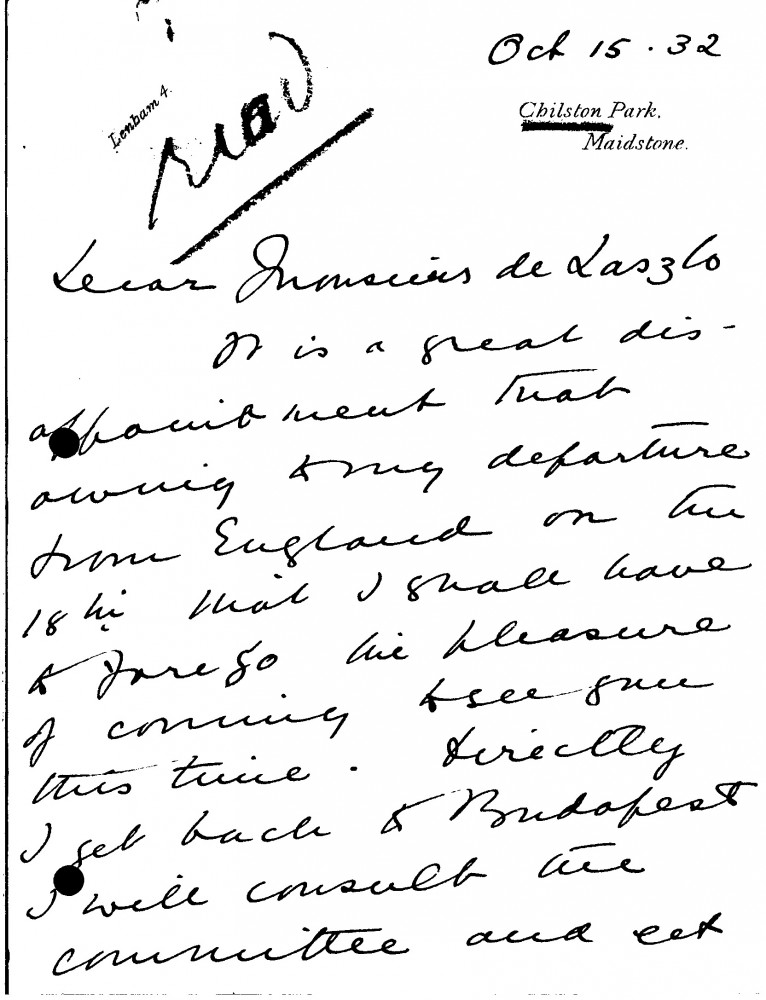 Oct 15 . 32
Lenham 4.
read
Chilston Park,
Maidstone.
Dear Monsieur de Laszlo
It is a great dis-
appointment that
owing to my departure
from England on the
18th that I shall have
to forego the pleasure
of coming to see you
this time. Directly
I get back to Budapest
I will consult the
committee and let